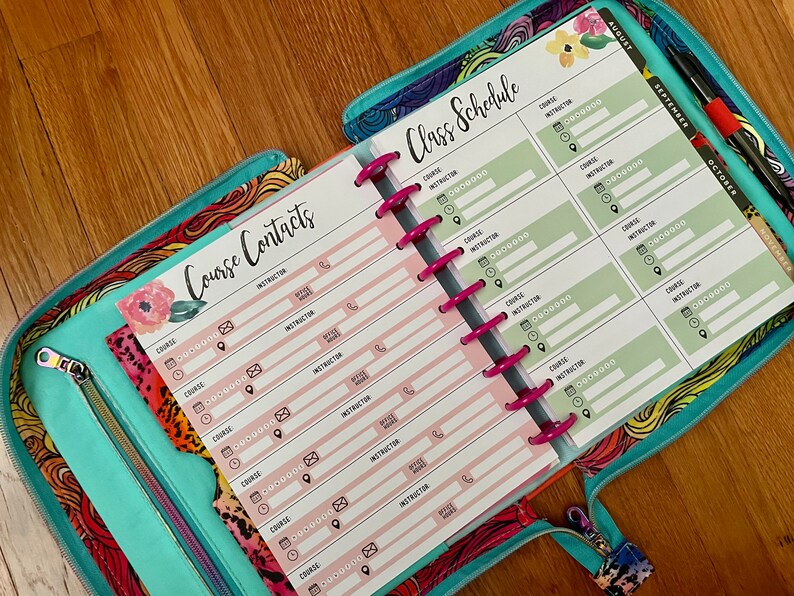 Course Contacts
COURSE: INSTRUCTOR:
OFFICE HOURS
COURSE: INSTRUCTOR:
OFFICE HOURS
COURSE: INSTRUCTOR:
OFFICE HOURS
COURSE: INSTRUCTOR:
OFFICE HOURS
COURSE: INSTRUCTOR:
OFFICE HOURS
COURSE: INSTRUCTOR:
OFFICE HOURS
Class Schedule
COURSE:
INSTRUCTOR:
COURSE:
INSTRUCTOR:
COURSE:
INSTRUCTOR:
COURSE:
INSTRUCTOR:
COURSE:
INSTRUCTOR:
COURSE:
INSTRUCTOR:
COURSE:
INSTRUCTOR:
COURSE:
INSTRUCTOR:
AUGUST
SEPTEMBER
OCTOBER
NOVEMBER